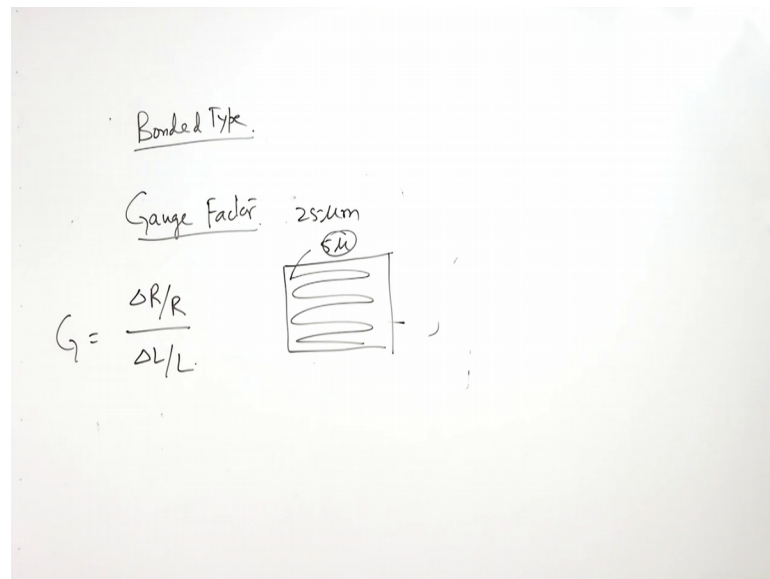 Bonded Type.
Gauge Factor. 25μm
5μ
G = ΔR/R
ΔL/L.